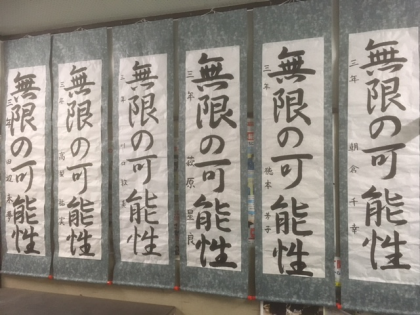 無限の可能性
三年
無限の可能性
三年
無限の可能性
三年
無限の可能性
三年 萩原星良
無限の可能性
三年
無限の可能性
三年 朝倉千幸